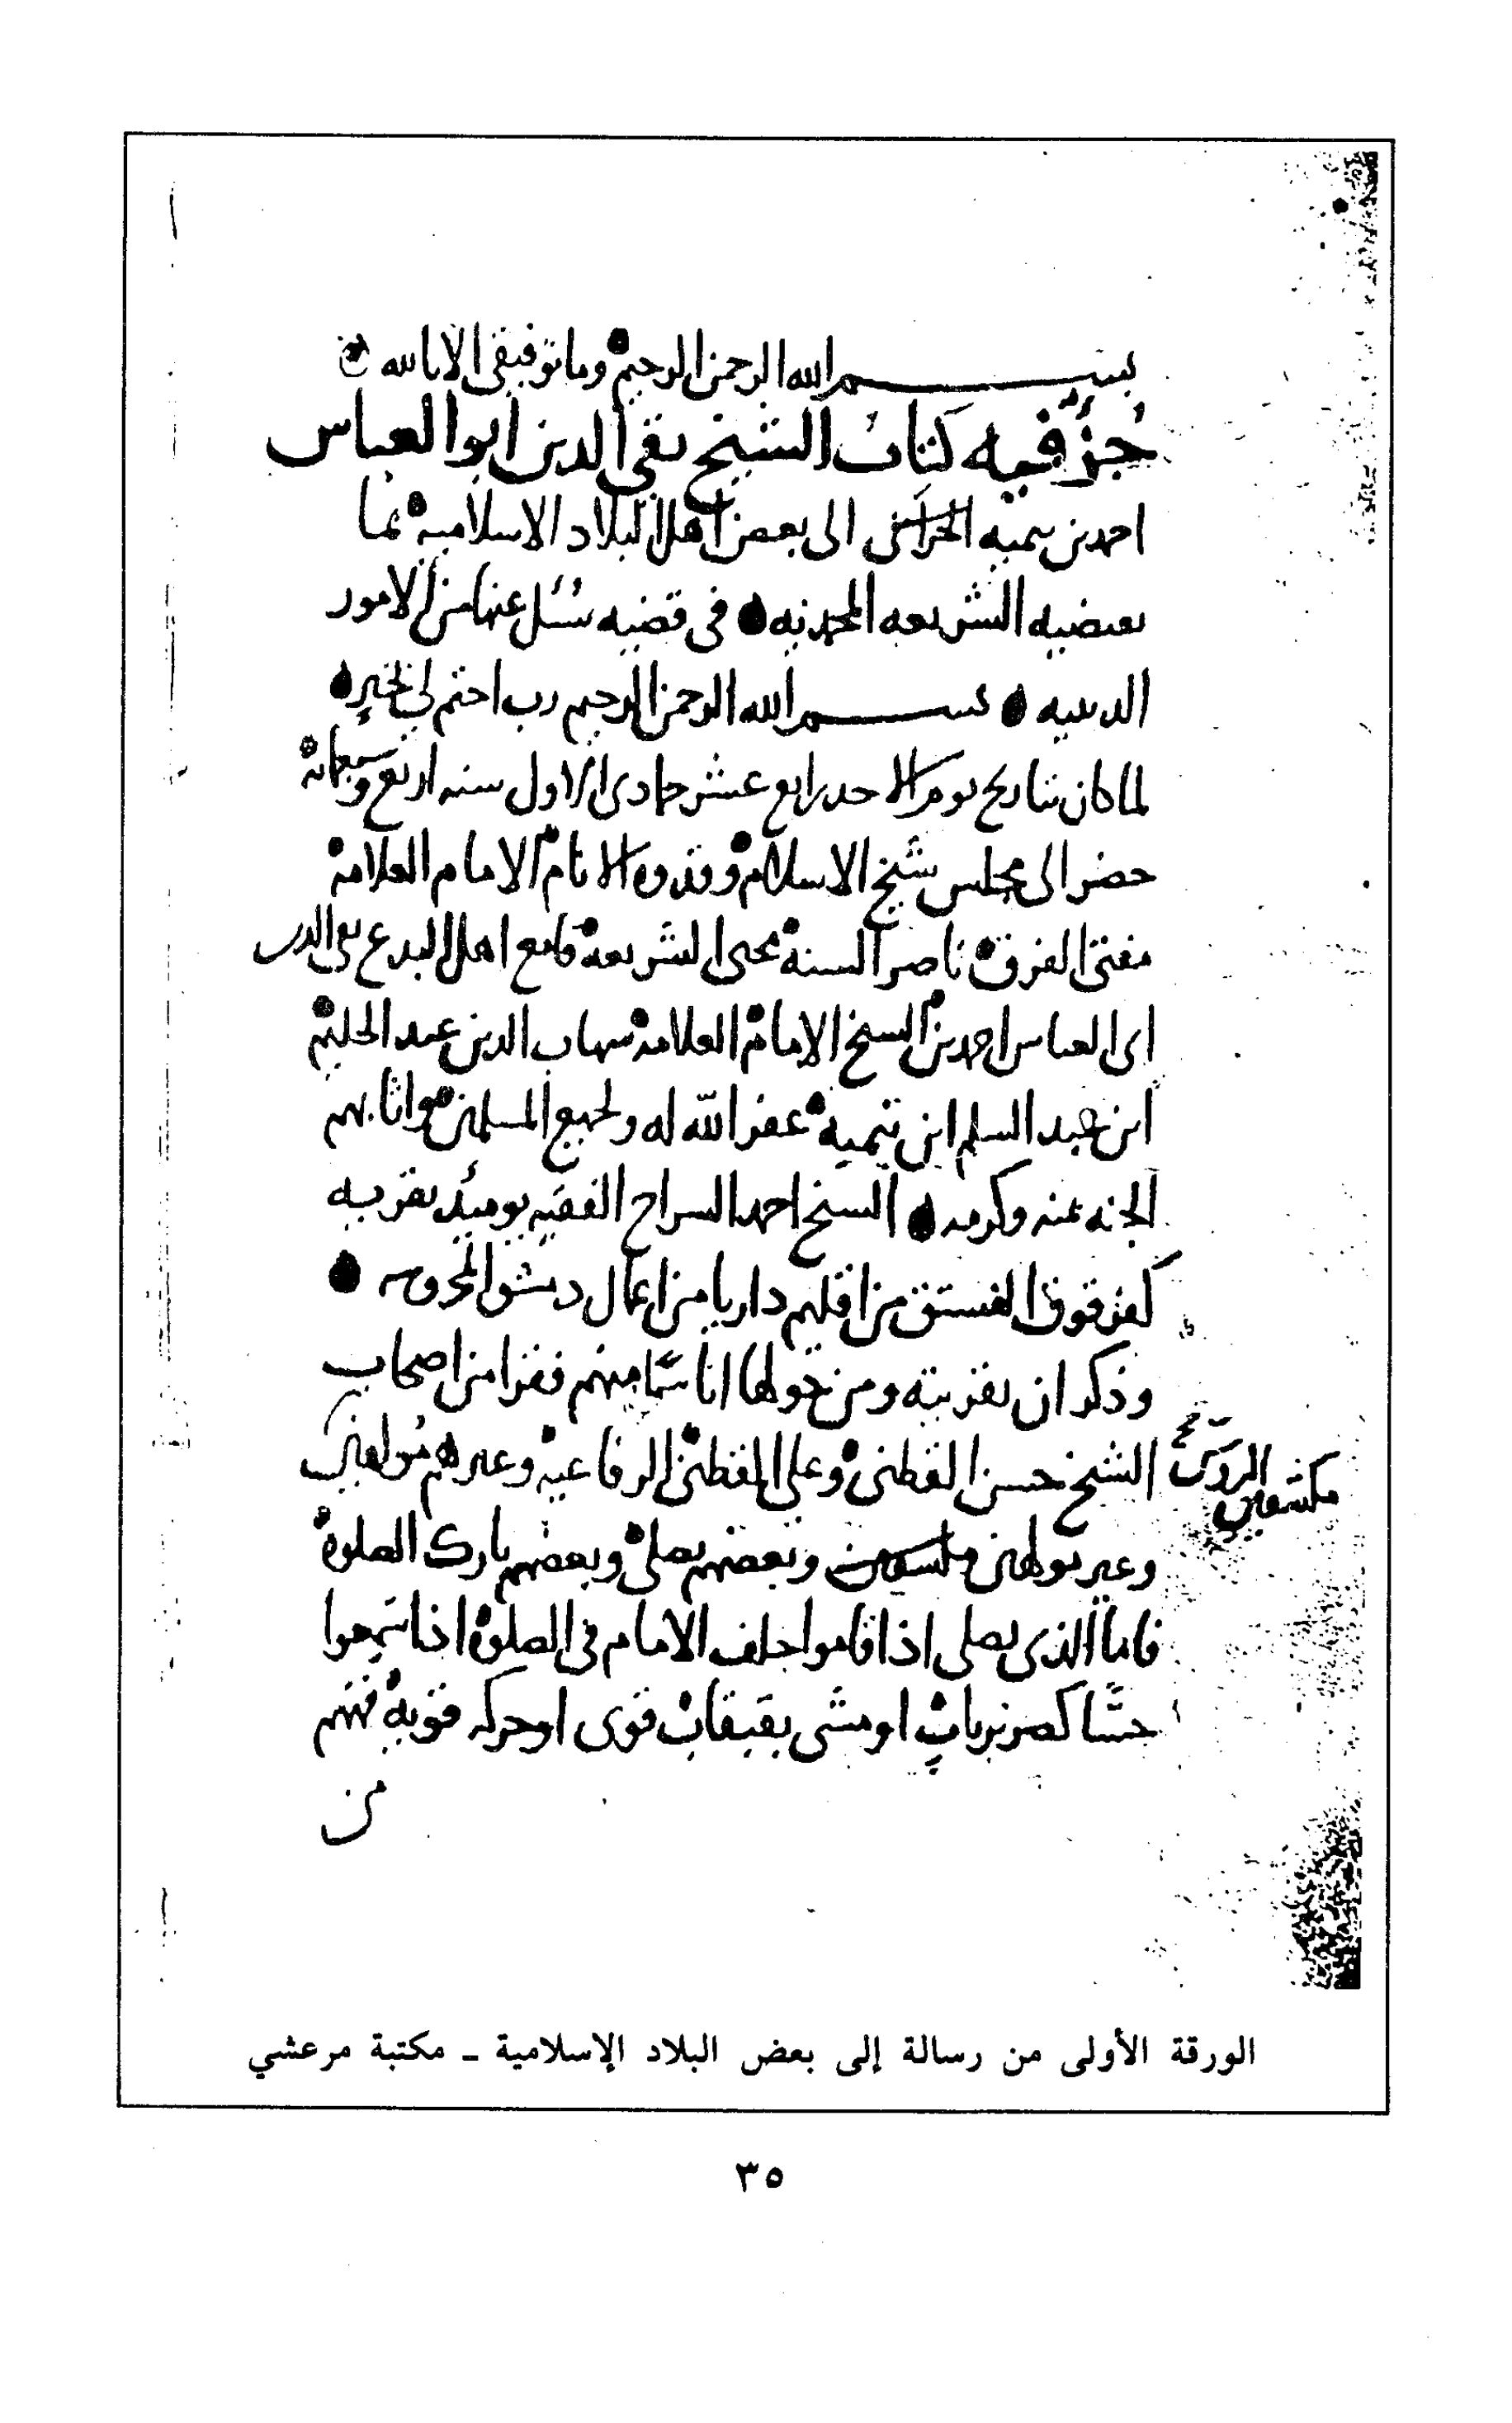 بسم الله الرحمن الرحيم وما توفيقي الا بالله
جزؤ فيه كتاب الشيخ تقي الدين ابو العباس
احمد بن تيميه الحراني الى بعض اهل البلاد الاسلامية بما
تقتضيه الشريعه المحمديه في قضيه سئل عنها من الامور
الدينيه بسم الله الرحمن الرحيم رب اختم لي بخير
لما كان بتاريخ يوم الاحد رابع عشر جمادى الاول سنه اربع وسبعمائة
حضر الى مجلس شيخ الاسلام وقدوه الانام الامام العلامة
مفتي الفرق ناصر السنة محيى الشريعة قامع اهل البدع تقي الدين
ابى العباس احمد بن الشيخ الامام العلامة شهاب الدين عبد الحليم
ابن عبد السلم ابن تيمية غفر الله له ولجميع المسلمين واثابهم
الجنه بمنه وكرمه الشيخ احمد السراج الفقيه يومئذ بقريه
كفرقوق الفستق من اقليم داريا من اعمال دمشق المحروسه
وذكر ان بقريته ومن حولها اناسا منهم فقرا من اصحاب
الشيخ حسن القطني وعلى القطني الرفاعية وغيرهم مولهين
مكشفين الروس صح
وغير مولهين وبعضهم يصلى وبعضهم تارك الصلوة
فاما الذي يصلى اذا قاموا خلف الامام في الصلوة اذا سمعوا
حسا كصرير باب او مشى بقبقاب قوى او حركه قوية فمنهم
من
الورقة الأولى من رسالة إلى بعض البلاد الإسلامية ـ مكتبة مرعشي
٣٥